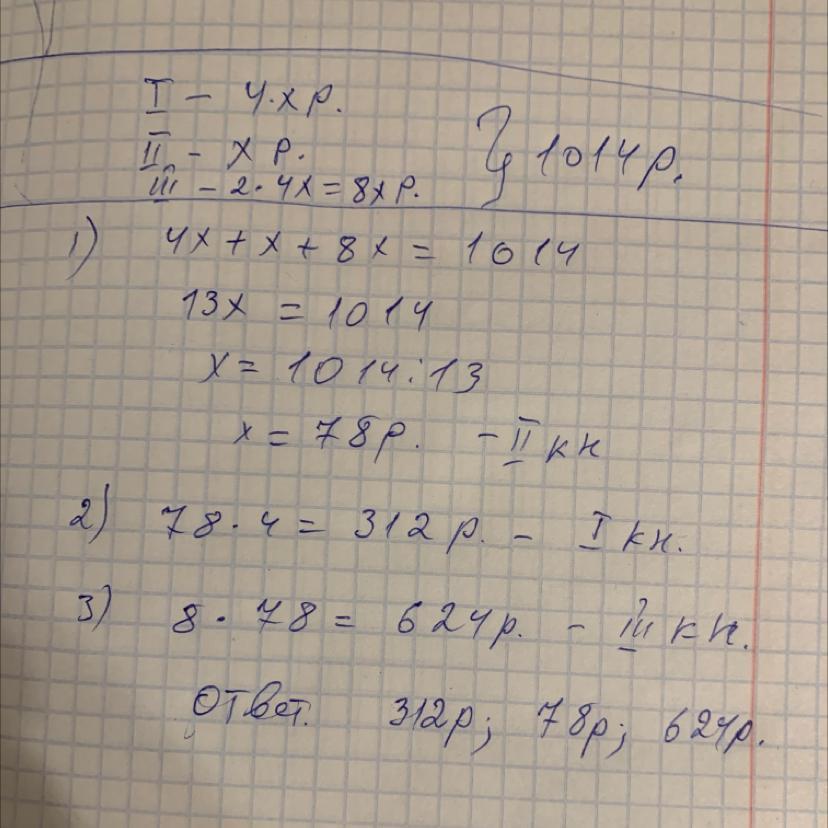 I - 4·x р.
II - x р.
III - 2·4x=8x р.
} 1014 р.
1) 4x+x+8x=1014
13x=1014
x=1014:13
x=78р. - II кн
2) 78·4=312 р. - I кн.
3) 8·78=624р. - III кн.
Ответ. 312р; 78р; 624р.